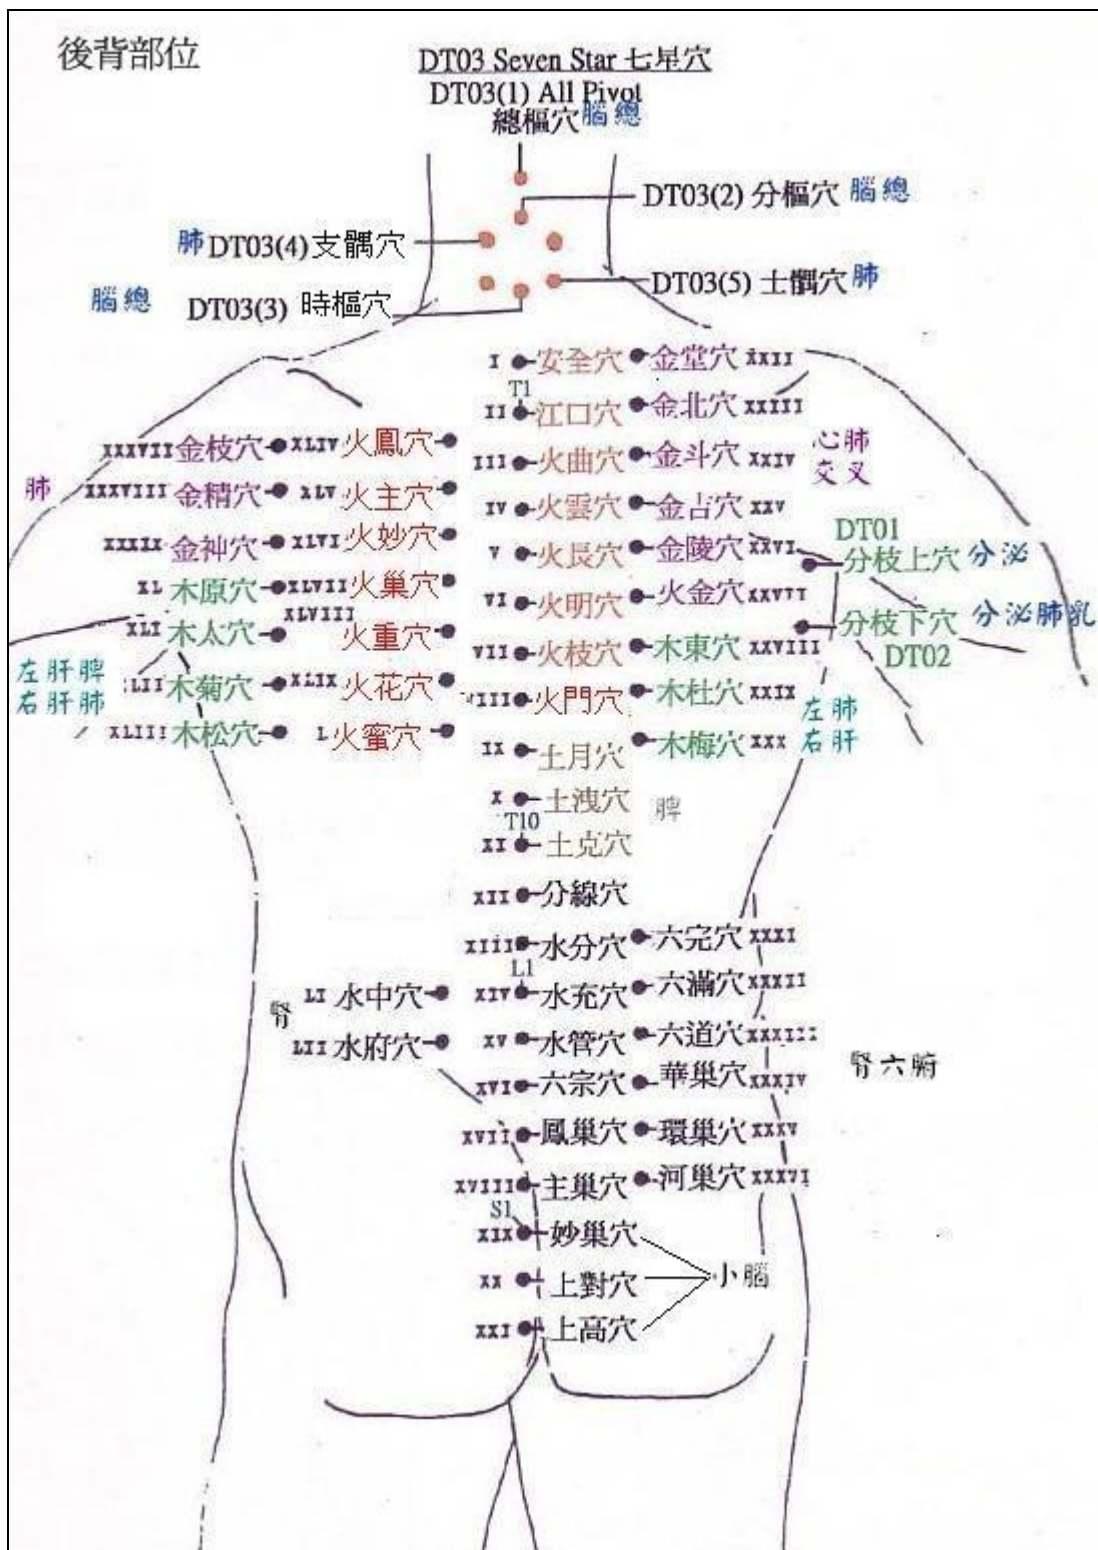 後背部位
DT03 Seven Star 七星穴
DT03(1) All Pivot
總樞穴 腦總
DT03(2) 分樞穴 腦總
肺 DT03(4) 支髃穴
DT03(5) 士髃穴 肺
腦總 DT03(3) 時樞穴
I 安全穴 金堂穴 XXII
T1
II 江口穴 金北穴 XXIII
XXXVII 金枝穴 XLIV 火鳳穴
III 火曲穴 金斗穴 XXIV
心肺
交叉
肺
XXXVIII 金精穴 XLV 火主穴
IV 火雲穴 金占穴 XXV
XXXIX 金神穴 XLVI 火妙穴
V 火長穴 金陵穴 XXVI
DT01
分枝上穴 分泌
XL 木原穴 XLVII 火巢穴
VI 火明穴 火金穴 XXVII
分枝下穴 分泌肺乳
DT02
XLI 木太穴 XLVIII 火重穴
VII 火枝穴 木東穴 XXVIII
左肝脾
右肝肺
XLII 木菊穴 XLIX 火花穴
VIII 火門穴 木杜穴 XXIX
左肺
右肝
XLIII 木松穴 L 火蜜穴
IX 土月穴 木梅穴 XXX
X 土洩穴
脾
T10
XI 土克穴
XII 分線穴
XIII 水分穴 六完穴 XXXI
L1
LI 水中穴 XIV 水充穴 六滿穴 XXXII
腎
LII 水府穴 XV 水管穴 六道穴 XXXIII
腎六腑
XVI 六宗穴 華巢穴 XXXIV
XVII 鳳巢穴 環巢穴 XXXV
XVIII 主巢穴 河巢穴 XXXVI
S1
XIX 妙巢穴
XX 上對穴 小腦
XXI 上高穴